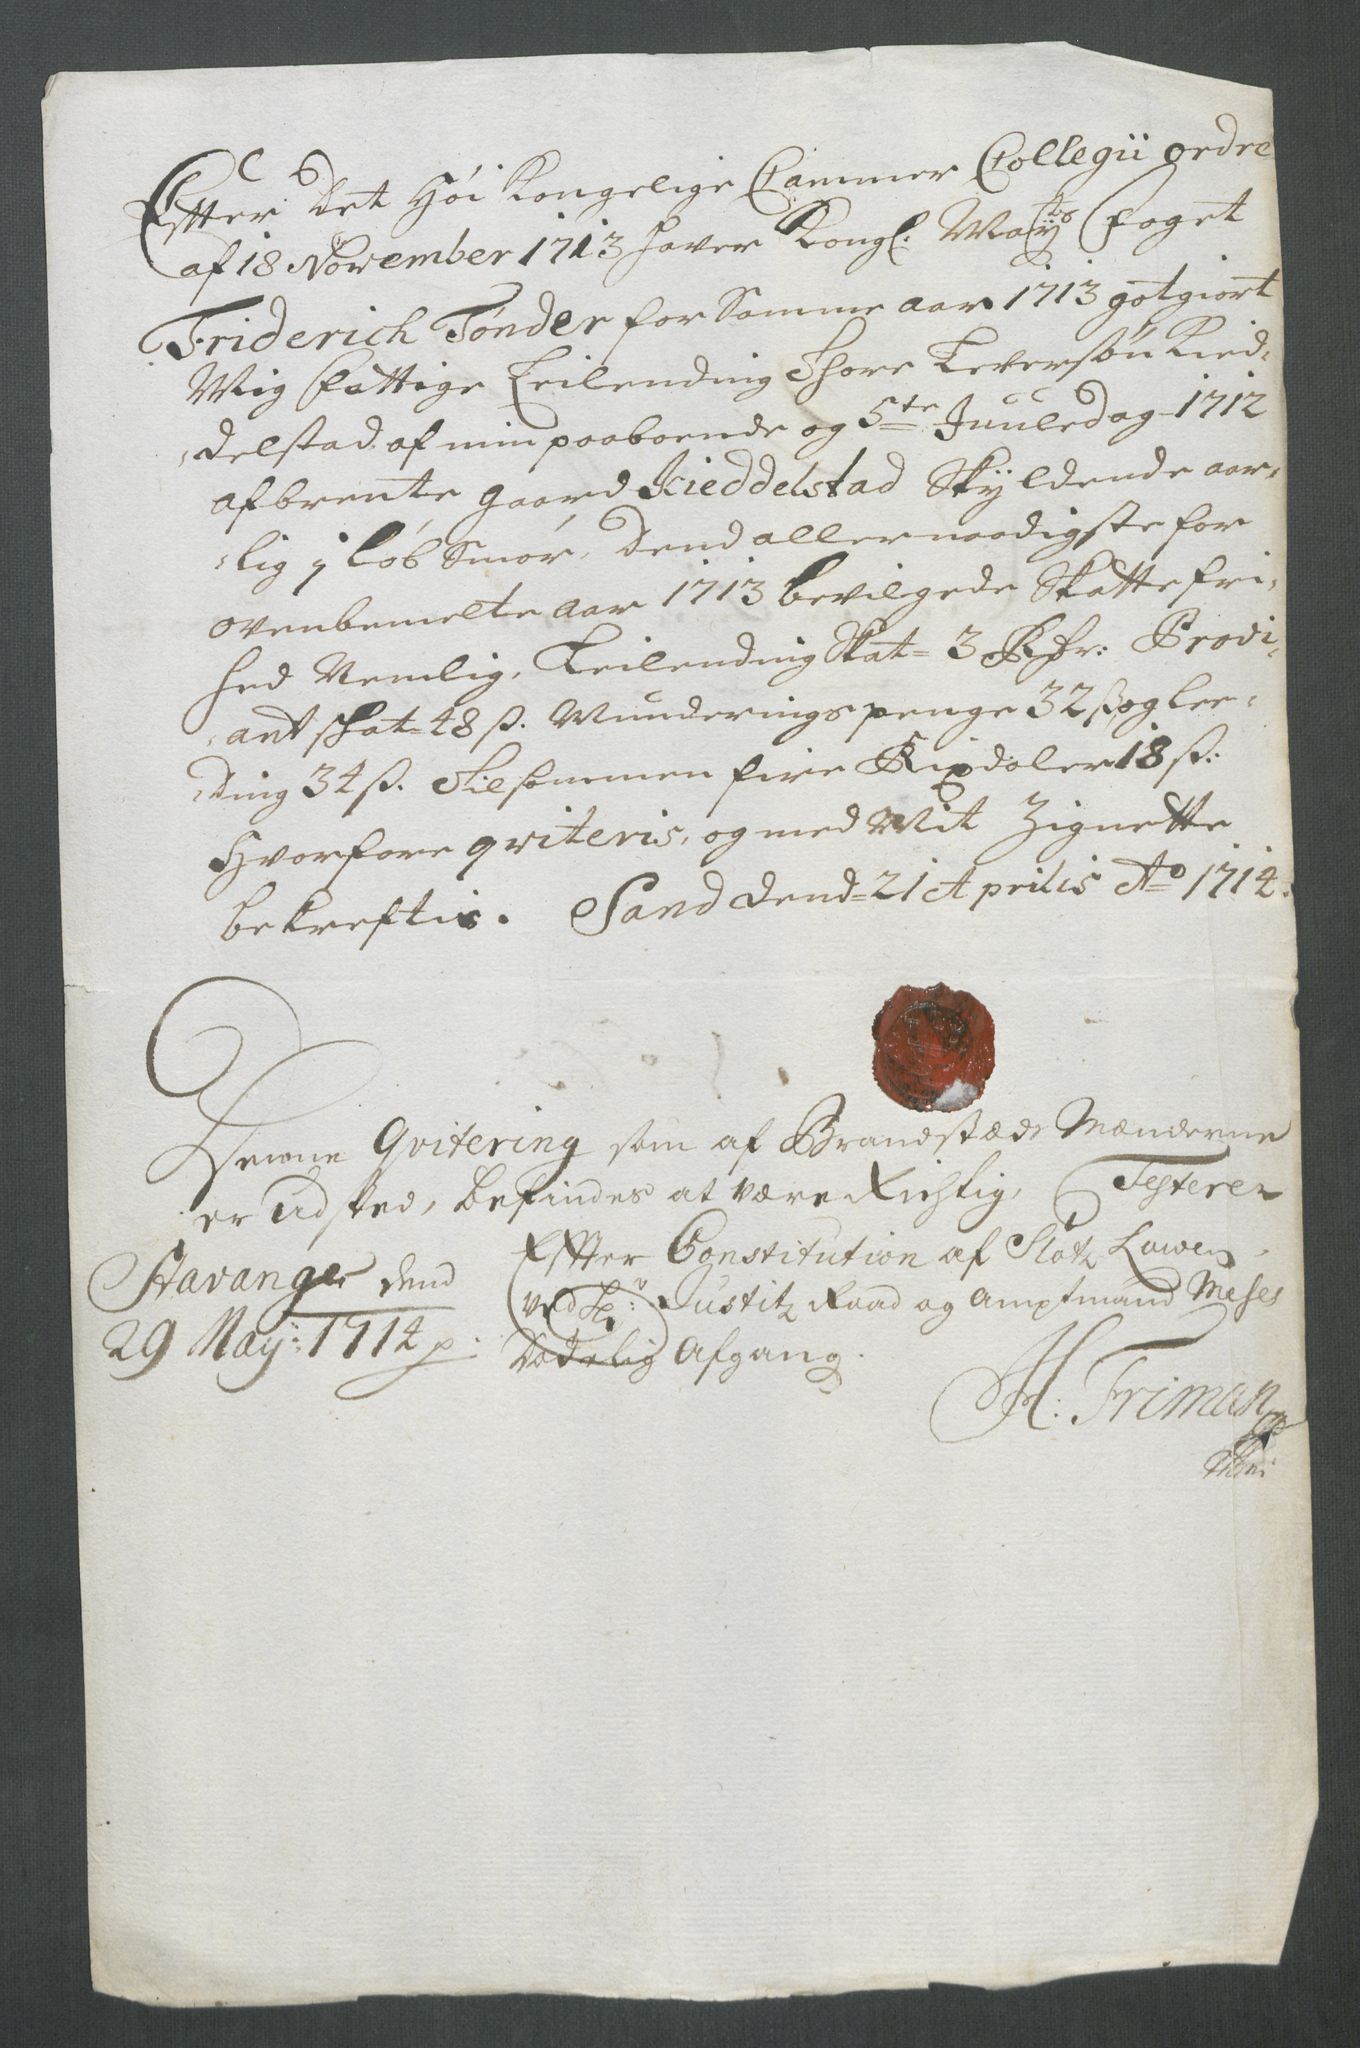 Effter det Høi Kongelige Cammer Collegii ordre
af 18 November 1713 haver Kongl: May:ts Foget
Friderich Tønder for Samme aar 1713 gotgiort
Mig fattige Leilending Thore Leversøn Kied-
delstad af min paaboende og 5te Juuledag 1712
afbrente gaard Kieddelstad Skyldende aar-
lig j løb Smør, dend allernaadigste for
ovenbemelte aar 1713 bevilgede Skatte fri-
hed Nemlig, Leilending Skat = 3 Rdr: Provi-
ant skat = 48 ß. Munderings penge 32 ß og Lee-
ding 34 ß. Tilsammen fire Rixdaler 18 ß:
Hvorfore qviteris, og med Mit Zignette
bekreftis. Sand dend = 21 Aprilis Ao 1714.
Denne Qvitering som af Brandstæds Mænderne
er udsted, befindes at være Richtig, Testerer
Stavanger dend
29 May: 1714 p:
Effter Constitution af Slotz Lowen
ved Sr: Justitz Raad og Amptmand
Dødelig Afgang.
H: Friman